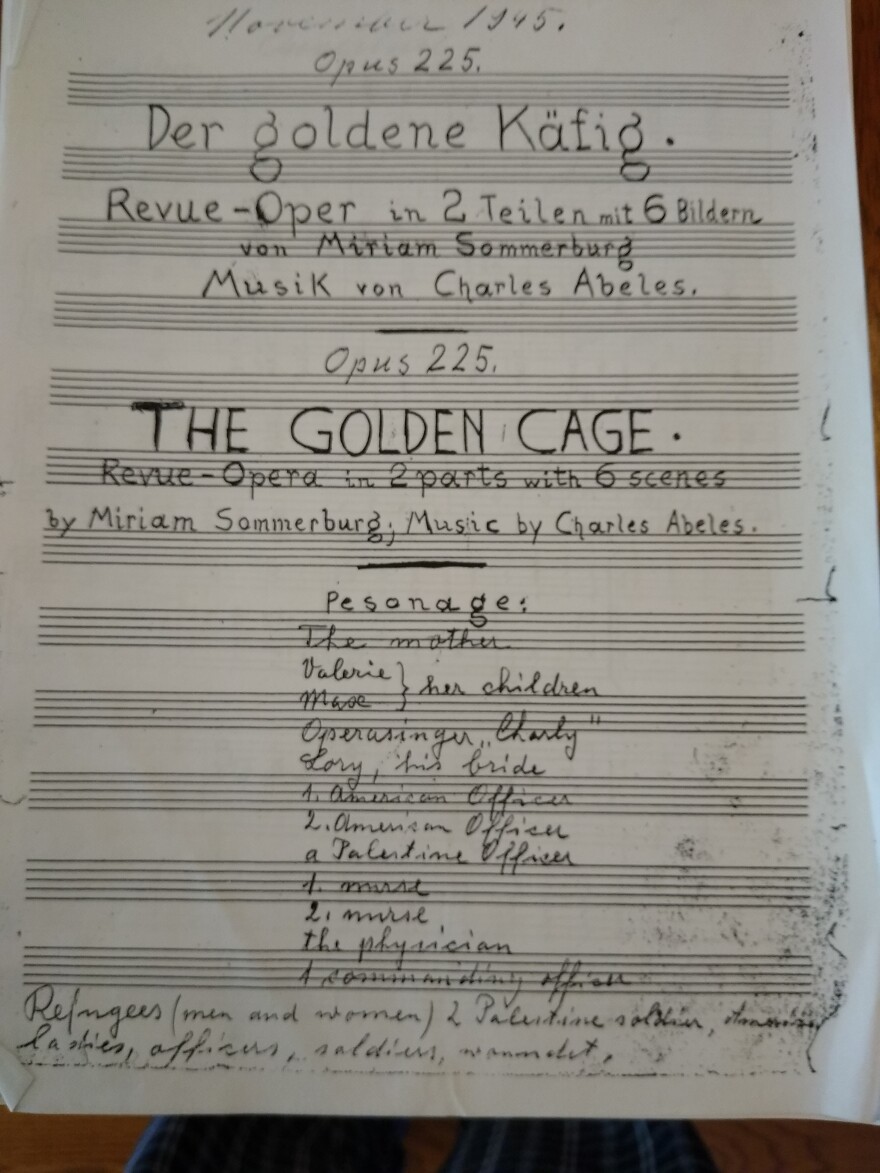 November 1945.
Opus 225.
Der goldene Käfig.
Revue-Oper in 2 Teilen mit 6 Bildern
von Miriam Sommerburg
Musik von Charles Abeles.
Opus 225.
THE GOLDEN CAGE.
Revue-Opera in 2 parts with 6 scenes
by Miriam Sommerburg; Music by Charles Abeles.
Pesonage:
The mother
Valerie } her children
Maxe
Operasinger „Charly"
Lory, his bride
1. American Officer
2. American Officer
a Palestine Officer
1. nurse
2. nurse
the physician
1 commanding officer
Refugees (men and women) 2 Palestine soldier,
ladies, officers, soldiers, woundet.